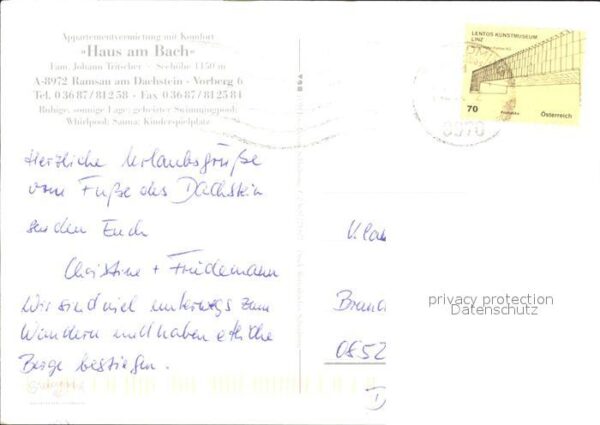 Appartementvermietung mit Komfort
»Haus am Bach«
Fam. Johann Tritscher - Seehöhe 1150 m
A-8972 Ramsau am Dachstein - Vorberg 6
Tel. 0 36 87 / 81 2 58 - Fax 0 36 87 / 81 25 84
Ruhige, sonnige Lage; geheizter Swimmingpool;
Whirlpool; Sauna; Kinderspielplatz
LENTOS KUNSTMUSEUM
LINZ
70
Österreich
8970
Herzliche Urlaubsgrüße
vom Fuße des Dachstein
senden Euch
Christine + Friedemann
Wir sind viel unterwegs zum
Wandern und haben etliche
Berge bestiegen.
Brand
0852
D
privacy protection
Datenschutz